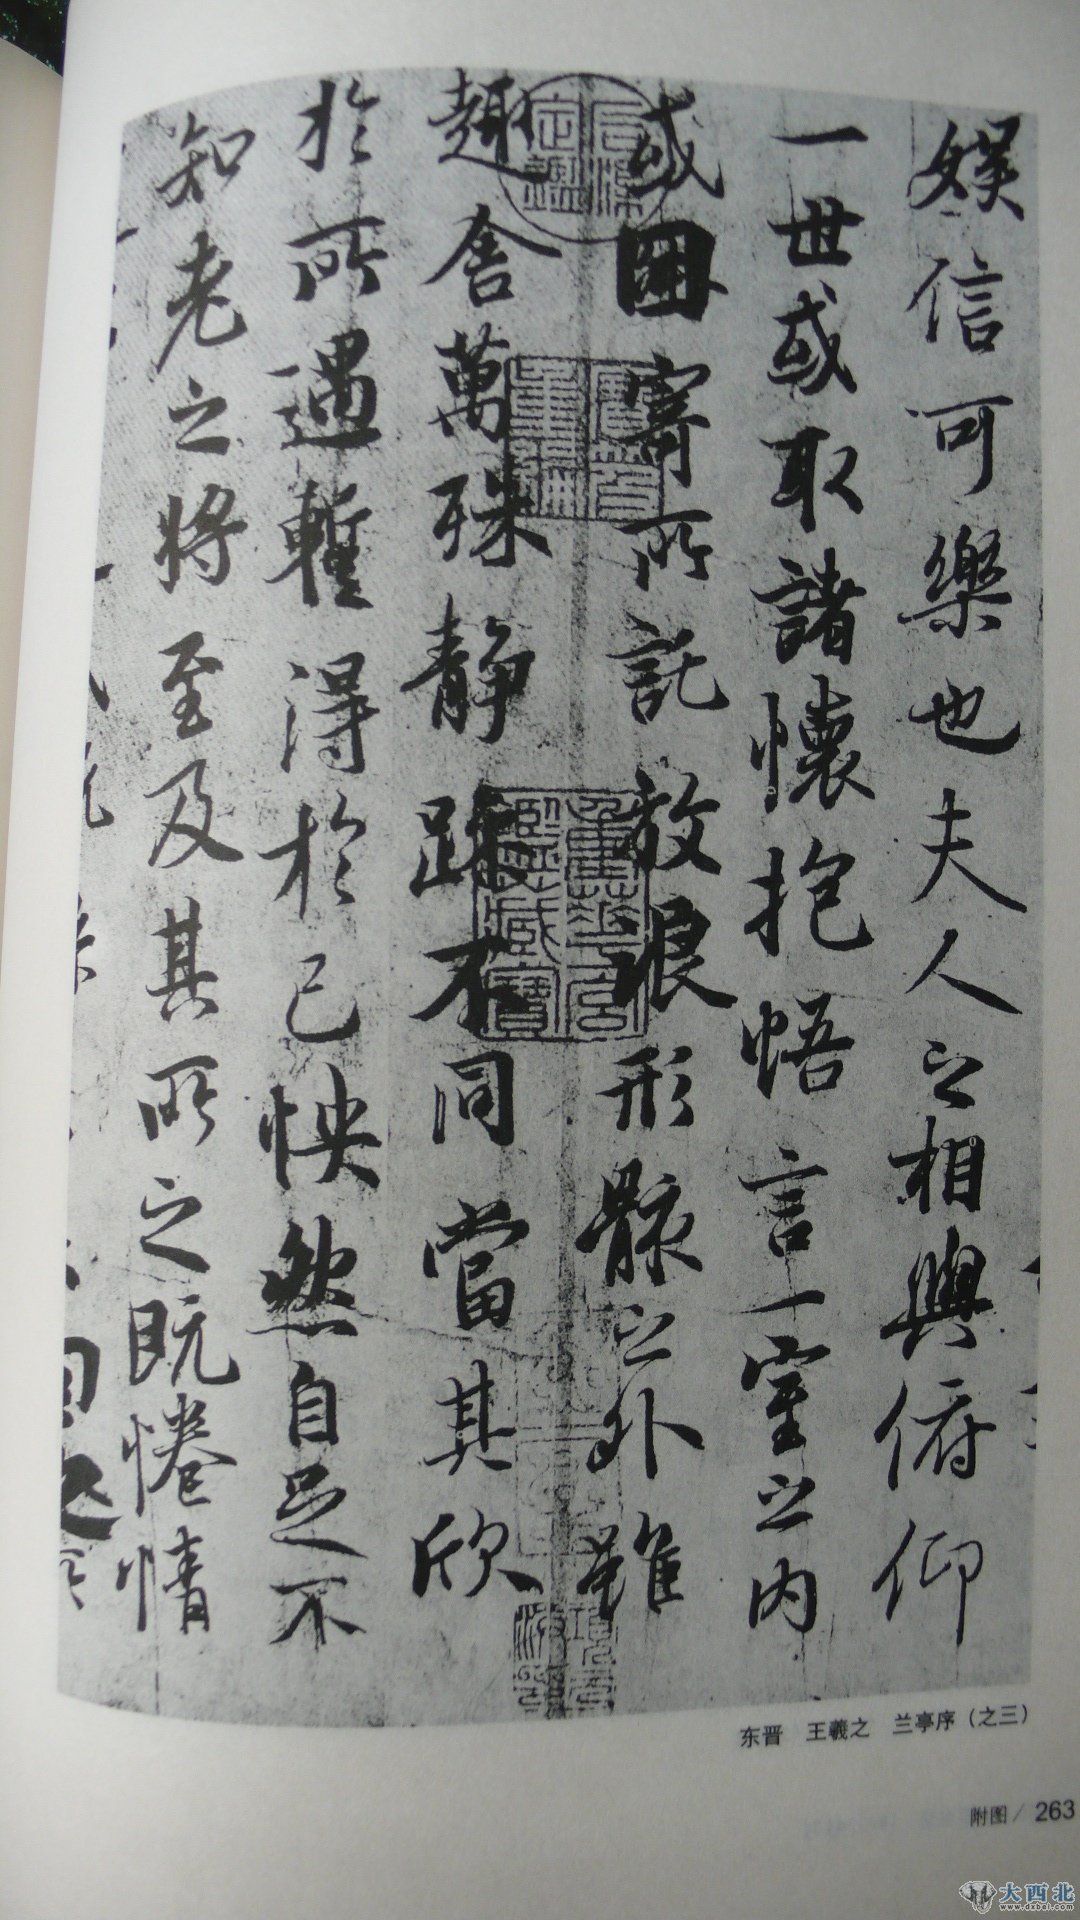 娛信可樂也夫人之相與俯仰
一世或取諸懷抱悟言一室之內
或因寄所託放浪形骸之外雖
趣舍萬殊静躁不同當其欣
於所遇暫得於己怏然自足不
知老之將至及其所之既惓情
东晋 王羲之 兰亭序（之三）
附图/ 263
大西北
www.dxbei.com